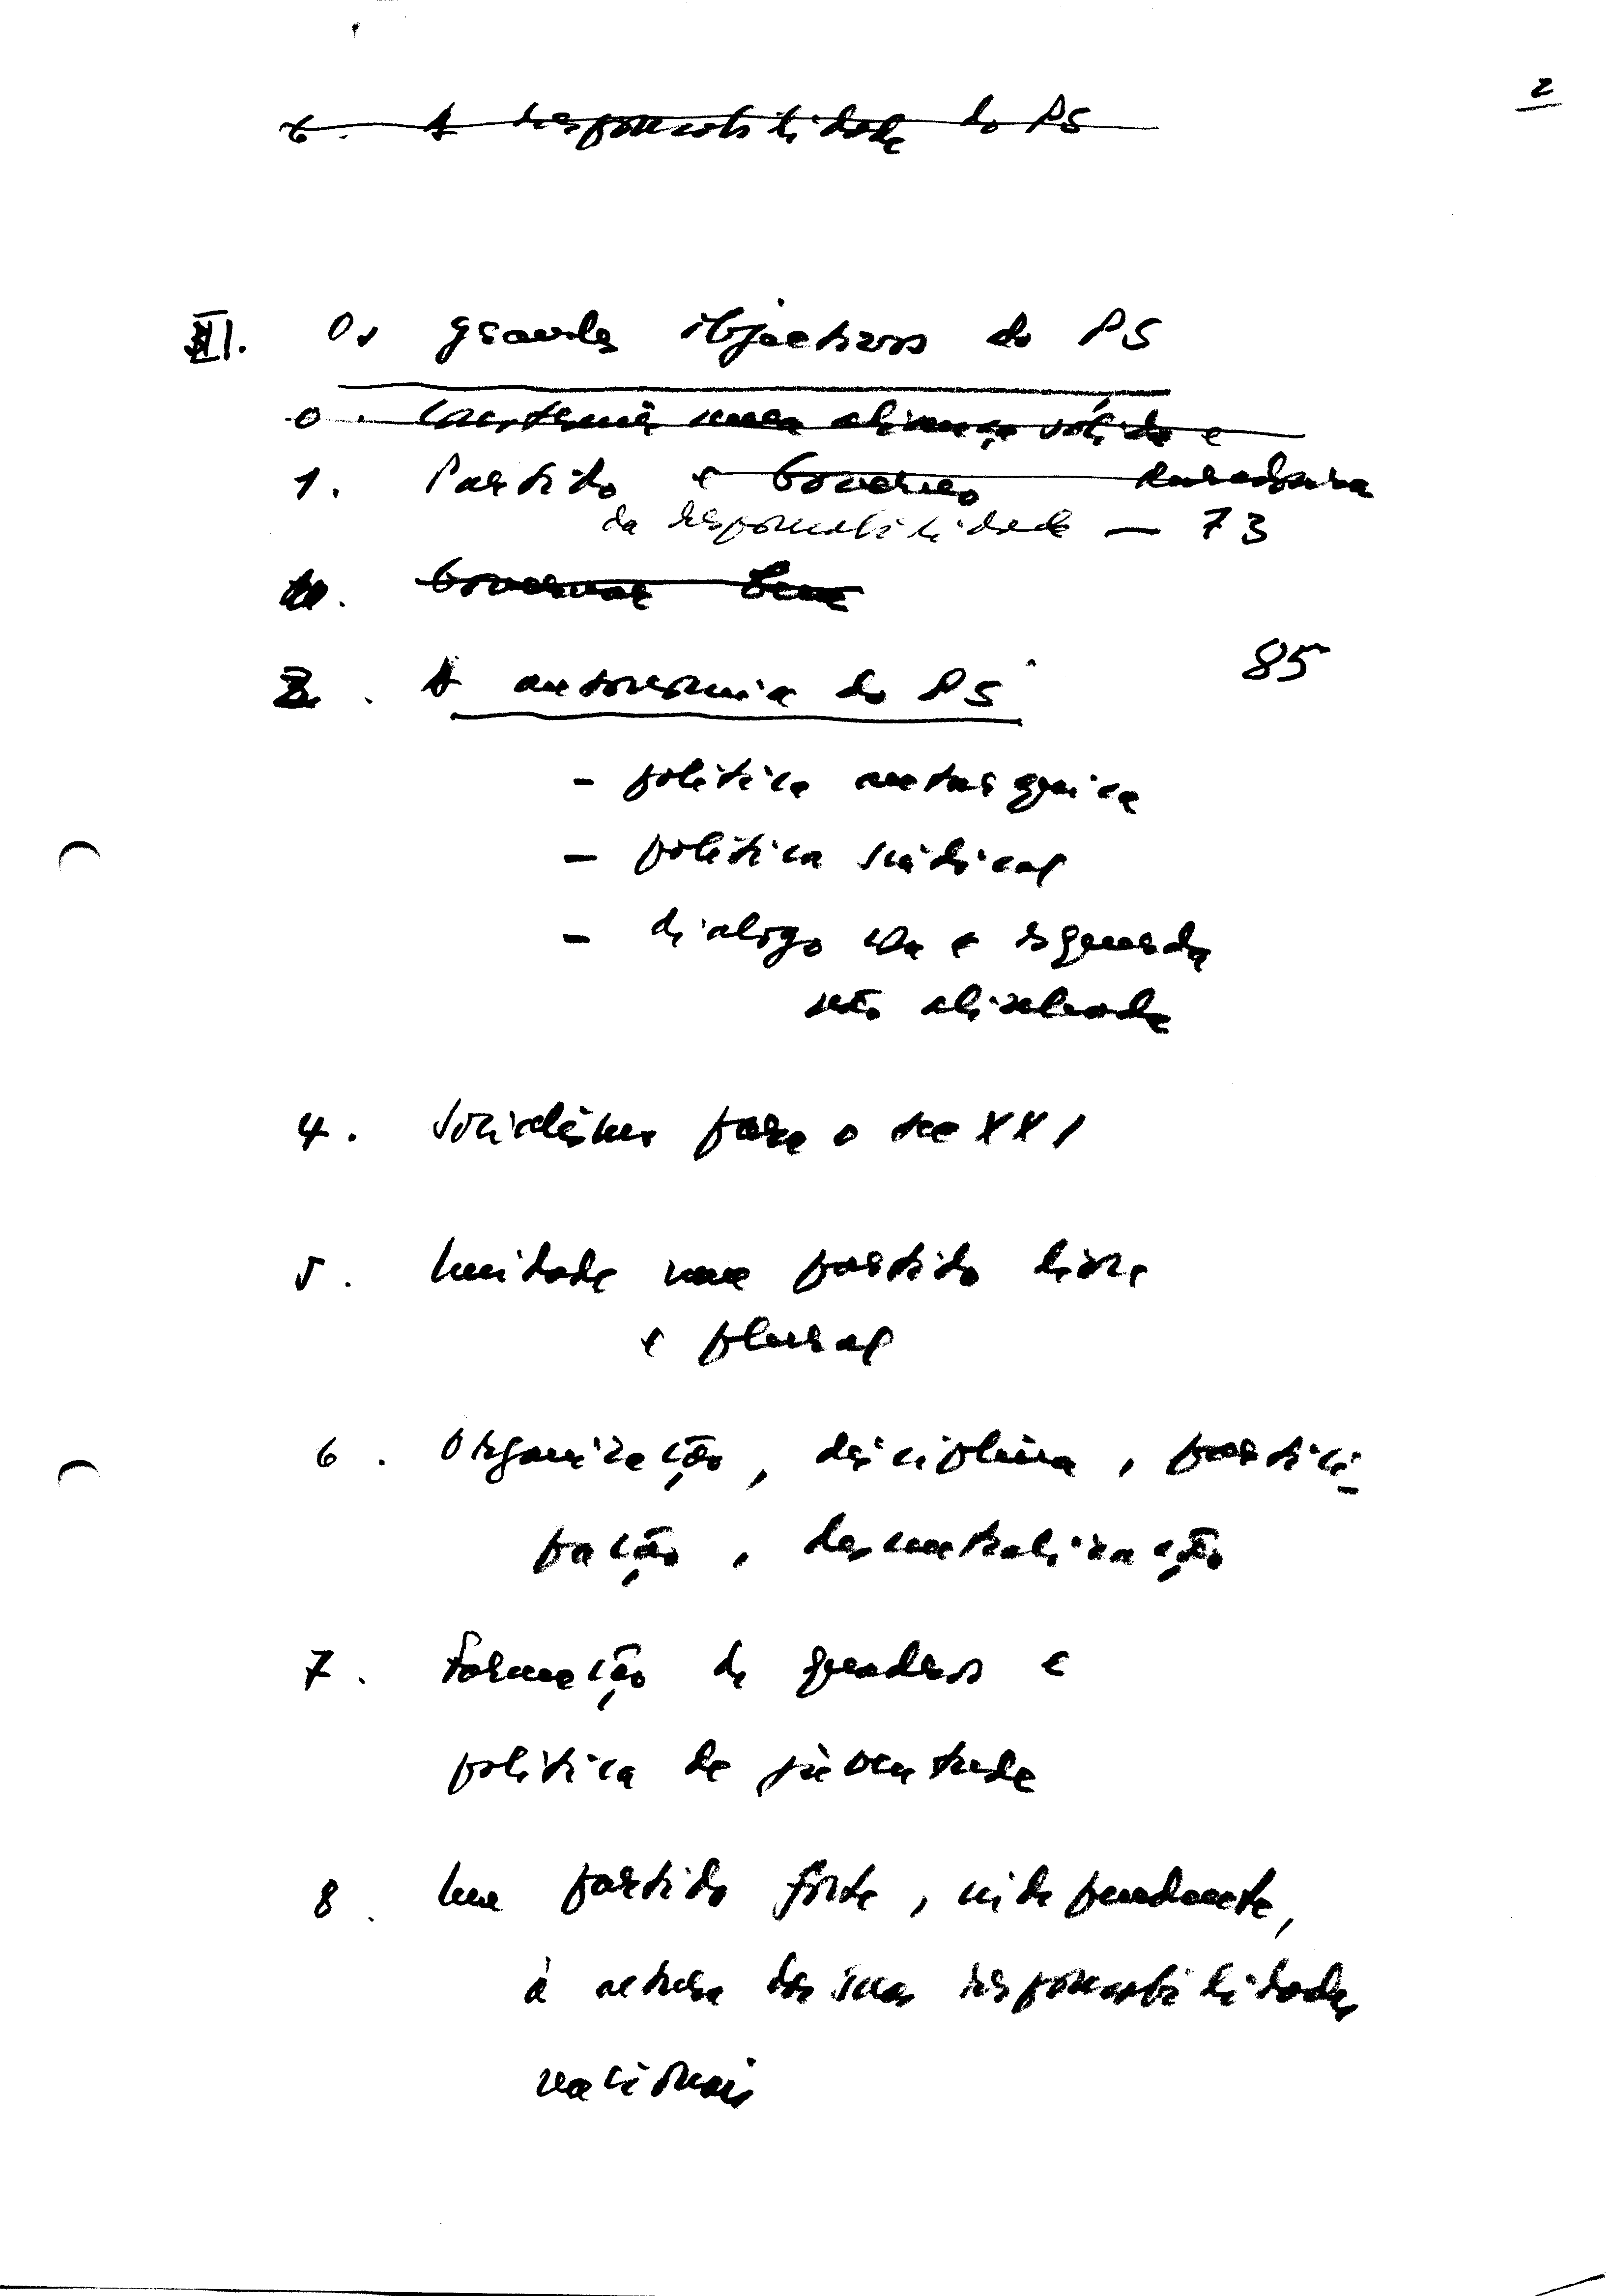 2
6. A responsabilidade do PS
III. Os grandes objectivos do PS
0. Construir uma aliança sólida e
duradoura
1. Partido e Governo
da responsabilidade — 73
Governar bem
85
2. A autonomia do PS
- política autárquica
- política sindical
- dialogo com a esquerda
não alinhada
4. Socialismo para o sec XXI
5. Unidade num partido livre
e plural
6. Organização, disciplina, partici-
pação, descentralização
7. Formação de quadros e
política de juventude
8. Um partido forte, independente,
à altura das suas responsabilidades
nacionais